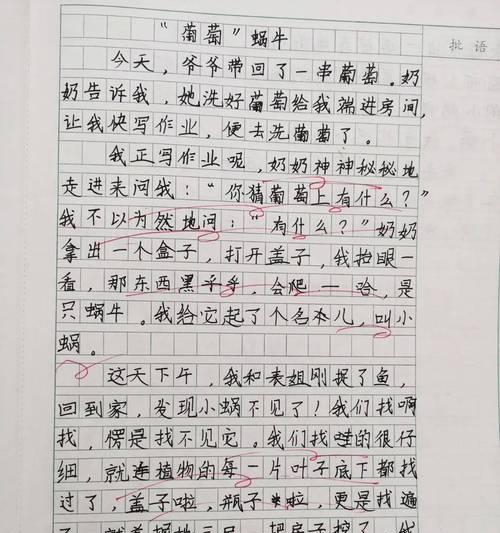 批语
“葡萄”蜗牛
今天，爷爷带回了一串葡萄。奶
奶告诉我，她洗好葡萄给我端进房间，
让我快写作业，便去洗葡萄了。
我正写作业呢，奶奶神神秘秘地
走进来问我：“你猜葡萄上有什么？”
我不以为然地问：“有什么？”奶奶
拿出一个盒子，打开盖子，我抬眼一
看，那东西黑乎乎，会爬——哈，是
只蜗牛。我给它起了个名本儿，叫小
蜗。
这天下午，我和表姐刚捉了鱼，
回到家，发现小蜗不见了！我们找啊
找，愣是找不见它。我们找的很仔
细，就连植物的每一片叶子底下都找
过了，盖子啦，瓶子啦，更是找遍
了，就差掘地三尺，把房子挖了，我